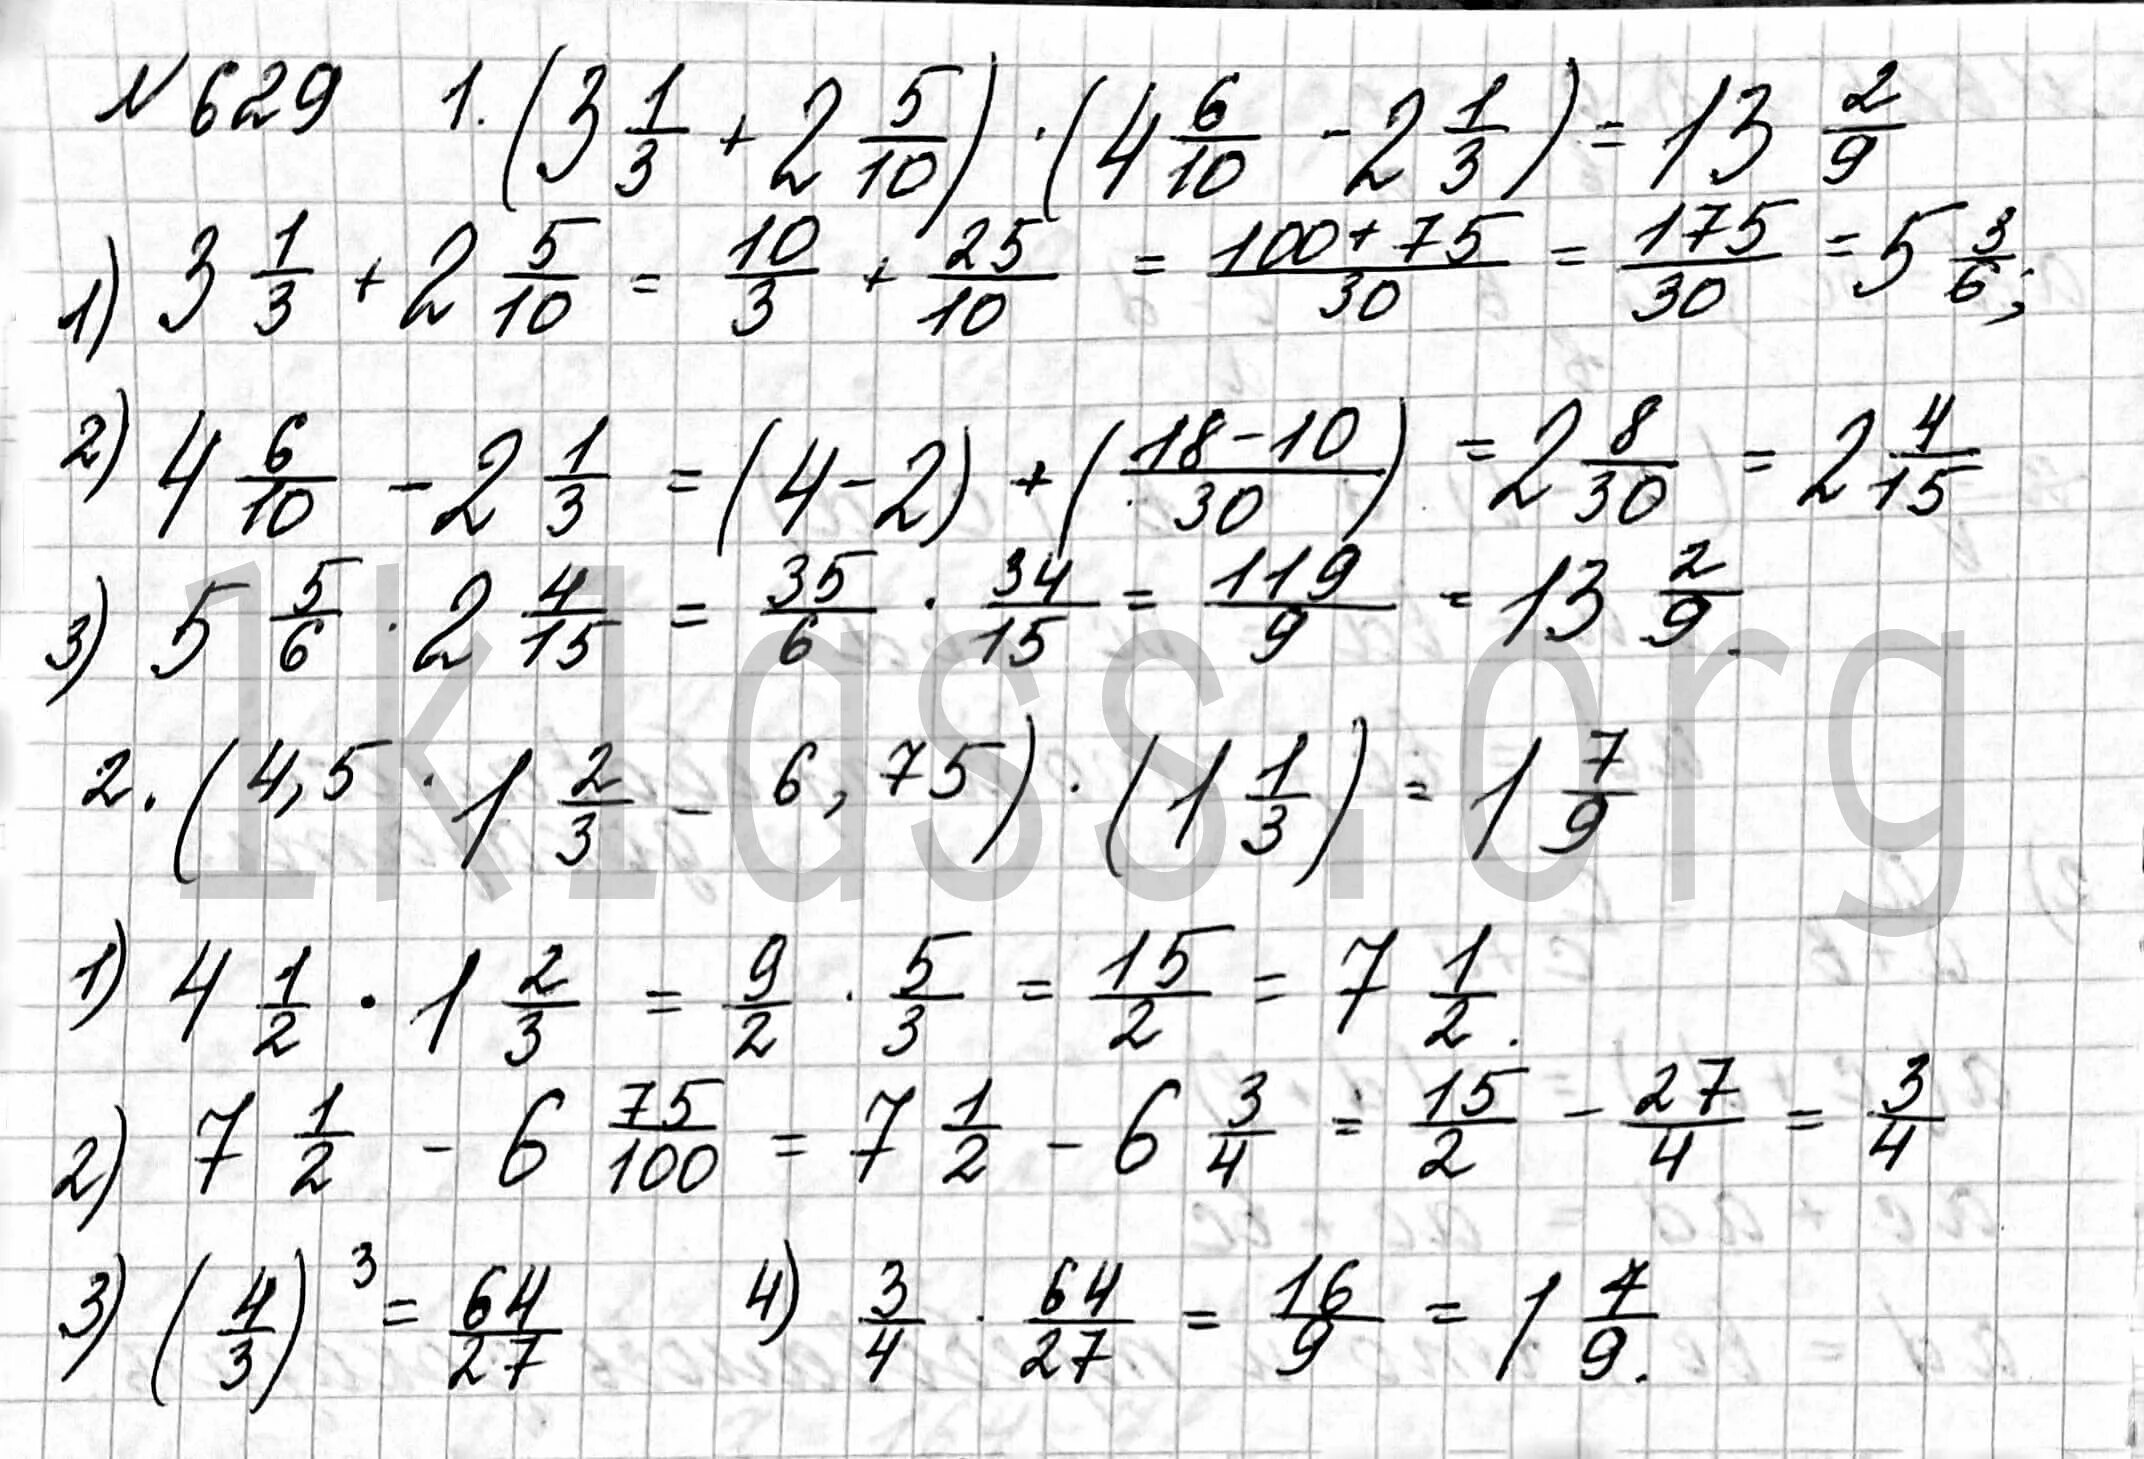 №629 1. (3 1/3 + 2 5/10) · (4 6/10 - 2 1/3) = 13 2/9
1) 3 1/3 + 2 5/10 = 10/3 + 25/10 = (100+75)/30 = 175/30 = 5 3/6;
2) 4 6/10 - 2 1/3 = (4-2) + ((18-10)/30) = 2 8/30 = 2 4/15
3) 5 5/6 · 2 4/15 = 35/6 · 34/15 = 119/9 = 13 2/9.
2. (4,5 · 1 2/3 - 6,75) · (1 1/3) = 1 7/9
1) 4 1/2 · 1 2/3 = 9/2 · 5/3 = 15/2 = 7 1/2.
2) 7 1/2 - 6 75/100 = 7 1/2 - 6 3/4 = 15/2 - 27/4 = 3/4
3) (4/3)³ = 64/27 4) 3/4 · 64/27 = 16/9 = 1 7/9.
1klass.org